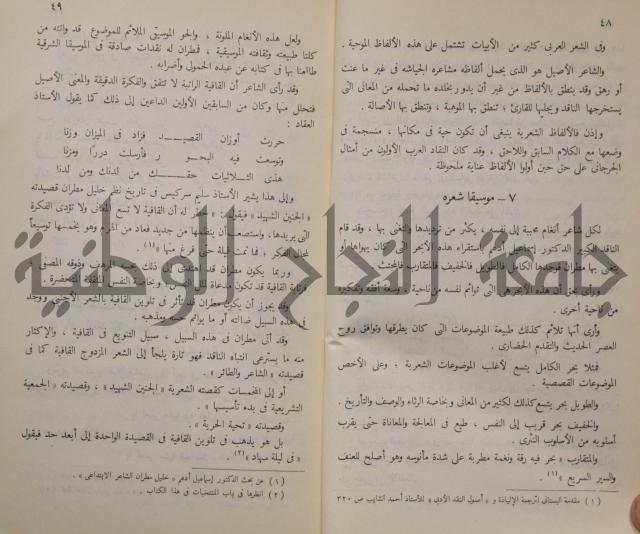 ٤٨
وفى الشعر العربى كثير من الأبيات تشتمل على هذه الألفاظ الموحية .
والشاعر الأصيل هو الذى يحمل ألفاظه مشاعره الجياشة فى غير ما عنت
أو رهق وقد ينطق بالألفاظ من غير أن يدور بخلده ما تحمله من المعانى التى
يستخرجها الناقد ويجليها للقارئ ؛ تنطق بها الموهبة ، وتنطق بها الأصالة .
وإذن فالألفاظ الشعرية ينبغى أن تكون حية فى مكانها ، منسجمة فى
وضعها مع الكلام السابق واللاحق ، وقد كان النقاد العرب الأولون من أمثال
الجرجانى على حق حين أولوا الألفاظ عناية ملحوظة .
٧ – موسيقا شعره
لكل شاعر أنغام محببة إلى نفسه ، يكثر من ترديدها والتغنى بها ، وقد قام
الناقد الكبير الدكتور إسماعيل أدهم باستقراء هذه الأبحر التى كان يهواها أو
يتغنى بها مطران فوجدها الكامل فالطويل فالخفيف فالمتقارب فالمجتث
ورأى بحق أن هذه الأبحر هى التى توائم نفسه من ناحية ، وسعة أفقه وتفكيره
من ناحية أخرى .
وأرى أنها تلائم كذلك طبيعة الموضوعات التى كان يطرقها وتوافق روح
العصر الحديث والتقدم الحضارى .
فمثلا بحر الكامل يتسع لأغلب الموضوعات الشعرية ؛ وعلى الأخص
الموضوعات القصصية .
والطويل بحر يتسع كذلك لكثير من المعانى وبخاصة الرثاء والوصف والتأريخ .
والخفيف بحر قريب إلى النفس ، طيع فى المعالجة والمعاناة حتى يقرب
أسلوبه من الأسلوب النثرى .
والمتقارب « بحر فيه رقة ونغمة مطربة على شدة مأنوسه وهو أصلح للعنف
والسير السريع »(١) .
( ١ ) مقدمة البستانى لترجمة الإلياذة و « أصول النقد الأدبى » للأستاذ أحمد الشايب ص ٣٢٠
٤٩
ولعل هذه الأنغام الملونة ، والجو الموسيقى الملائم للموضوع قد واتته من
كلتا طبيعته وثقافته الموسيقية ، فمطران له نقدات صادقة فى الموسيقا الشرقية
طالعنا بها فى كتابه عن عبده الحمولى وأضرابه .
وقد رأى الشاعر أن القافية الراتبة لا تتفق والفكرة الدقيقة والمعنى الأصيل
فتحلل منها وكان من السابقين الأولين الداعين إلى ذلك كما يقول الأستاذ
العقاد :
حررت أوزان القصيـــد فزاد فى الميزان وزنا
وتوسعت فيه البحـــور فأرسلت دررًا ومزنا
هذى الثلاثيات حقـــك من لدنك ومن لدنا
وإلى هذا يشير الأستاذ سليم سركيس فى تاريخ نظم خليل مطران قصيدته
« الجنين الشهيد » فيقول : « ظهر له أن القافية لا تسع المعانى ولا تؤدى الفكرة
التى يريدها ، واستصعب أن ينظمها من جديد فعاد من المرام وهو يخمسها توسيعاً
لمجال الفكر ؛ فما تمت ليلة حتى فرغ منها »(١)
وربما يكون مطران قد اهتدى إلى ذلك بحسه المرهف وذوقه المصفى
فرتابة القافية قد تكون مدعاة وبخاصة النفس المثقفة المتحضرة .
وقد يجوز أن يكون مطران قد تأثر فى تلوين القافية بالشعر الأجنبى ووجد
فى هذه السبيل ضالته أو ما يوائم ومذهبه .
وقد أتى مطران فى هذه السبيل ، سبيل التنويع فى القافية ، والإكثار
منه ما يسترعى انتباه الناقد فهو تارة يلجأ إلى الشعر المزدوج القافية كما فى
قصيدته « الشاعر والطائر » .
أو إلى المخمسات كقصته الشعرية « الجنين الشهيد » ، وقصيدته « الجمعية
التشريعية فى بدء تأسيسها » .
وقصيدته « تحية الحرية » .
بل هو يذهب فى تلوين القافية فى القصيدة الواحدة إلى أبعد حد فيقول
« فى ليلة سهاد »(٢) .
( ١ ) عن بحث الدكتور إسماعيل أدهم « خليل مطران الشاعر الابتداعى » .
( ٢ ) انظرها فى باب المنتخبات فى هذا الكتاب .
جامعة النجاح الوطنية